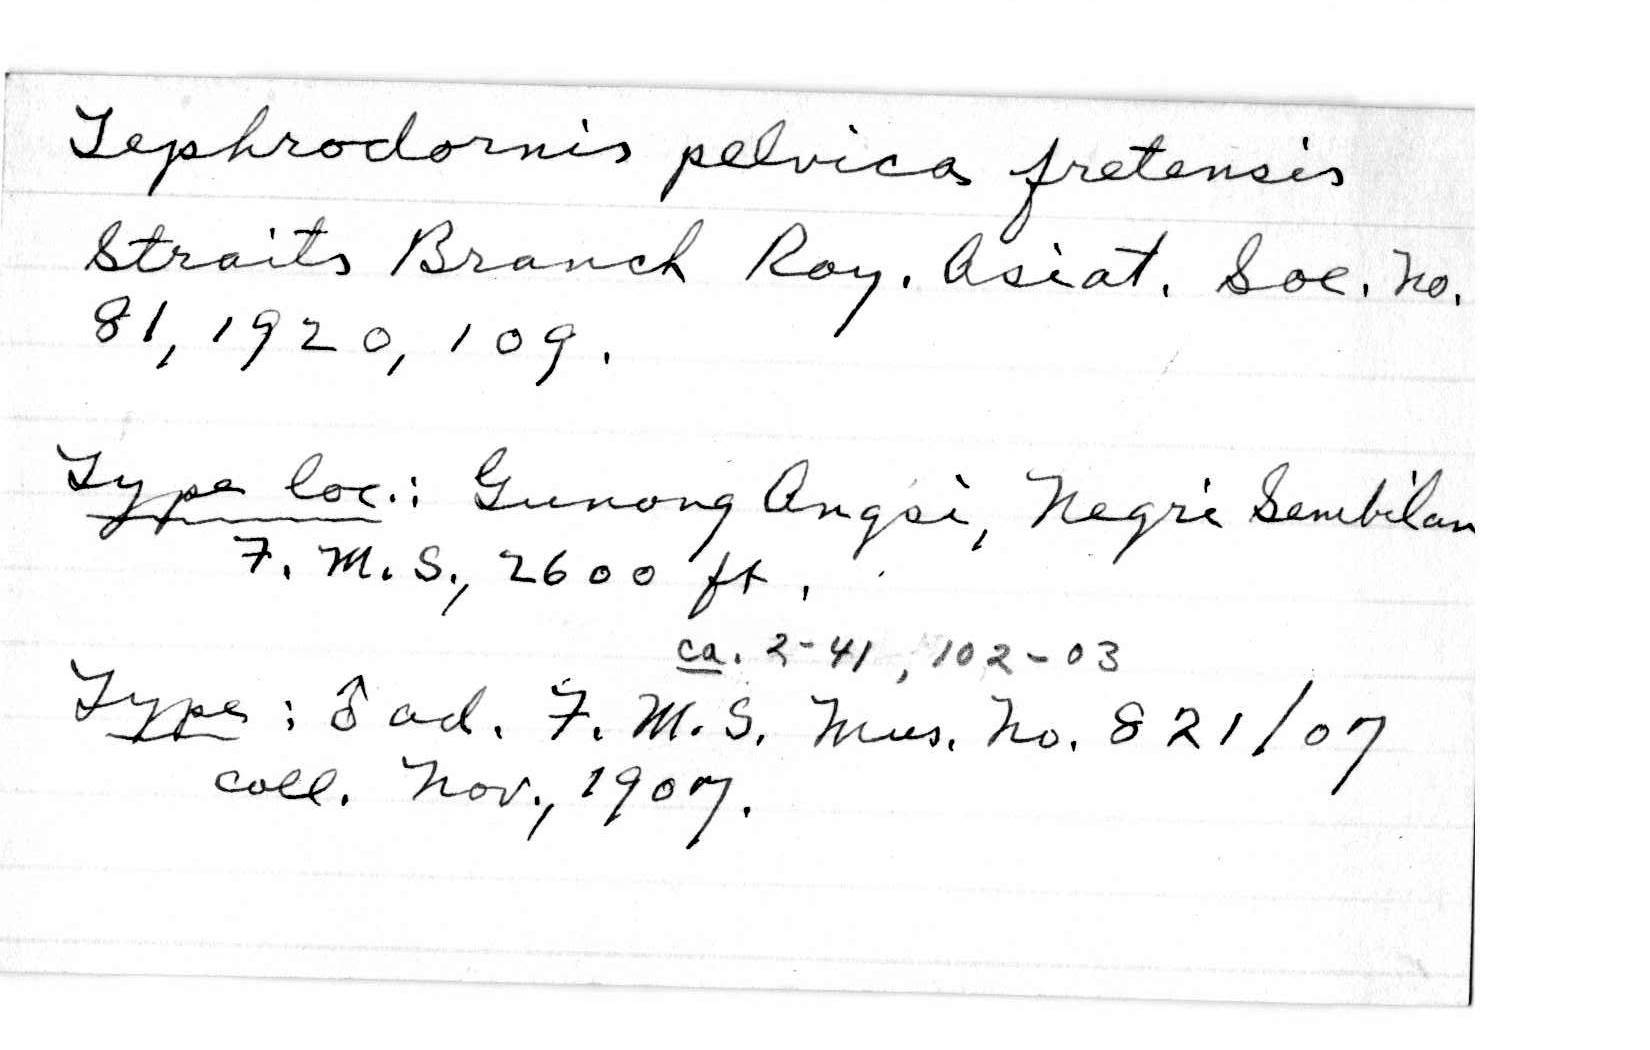 Tephrodornis pelvica fretensis
Straits Branch Roy. Asiat. Soc. No.
81, 1920, 109.
Type loc.: Gunong Angsi, Negri Sembilan
F. M. S., 2600 ft.
ca. 2-41, 102-03
Type: ♂ ad. F. M. S. Mus. No. 821/07
coll. Nov., 1907.